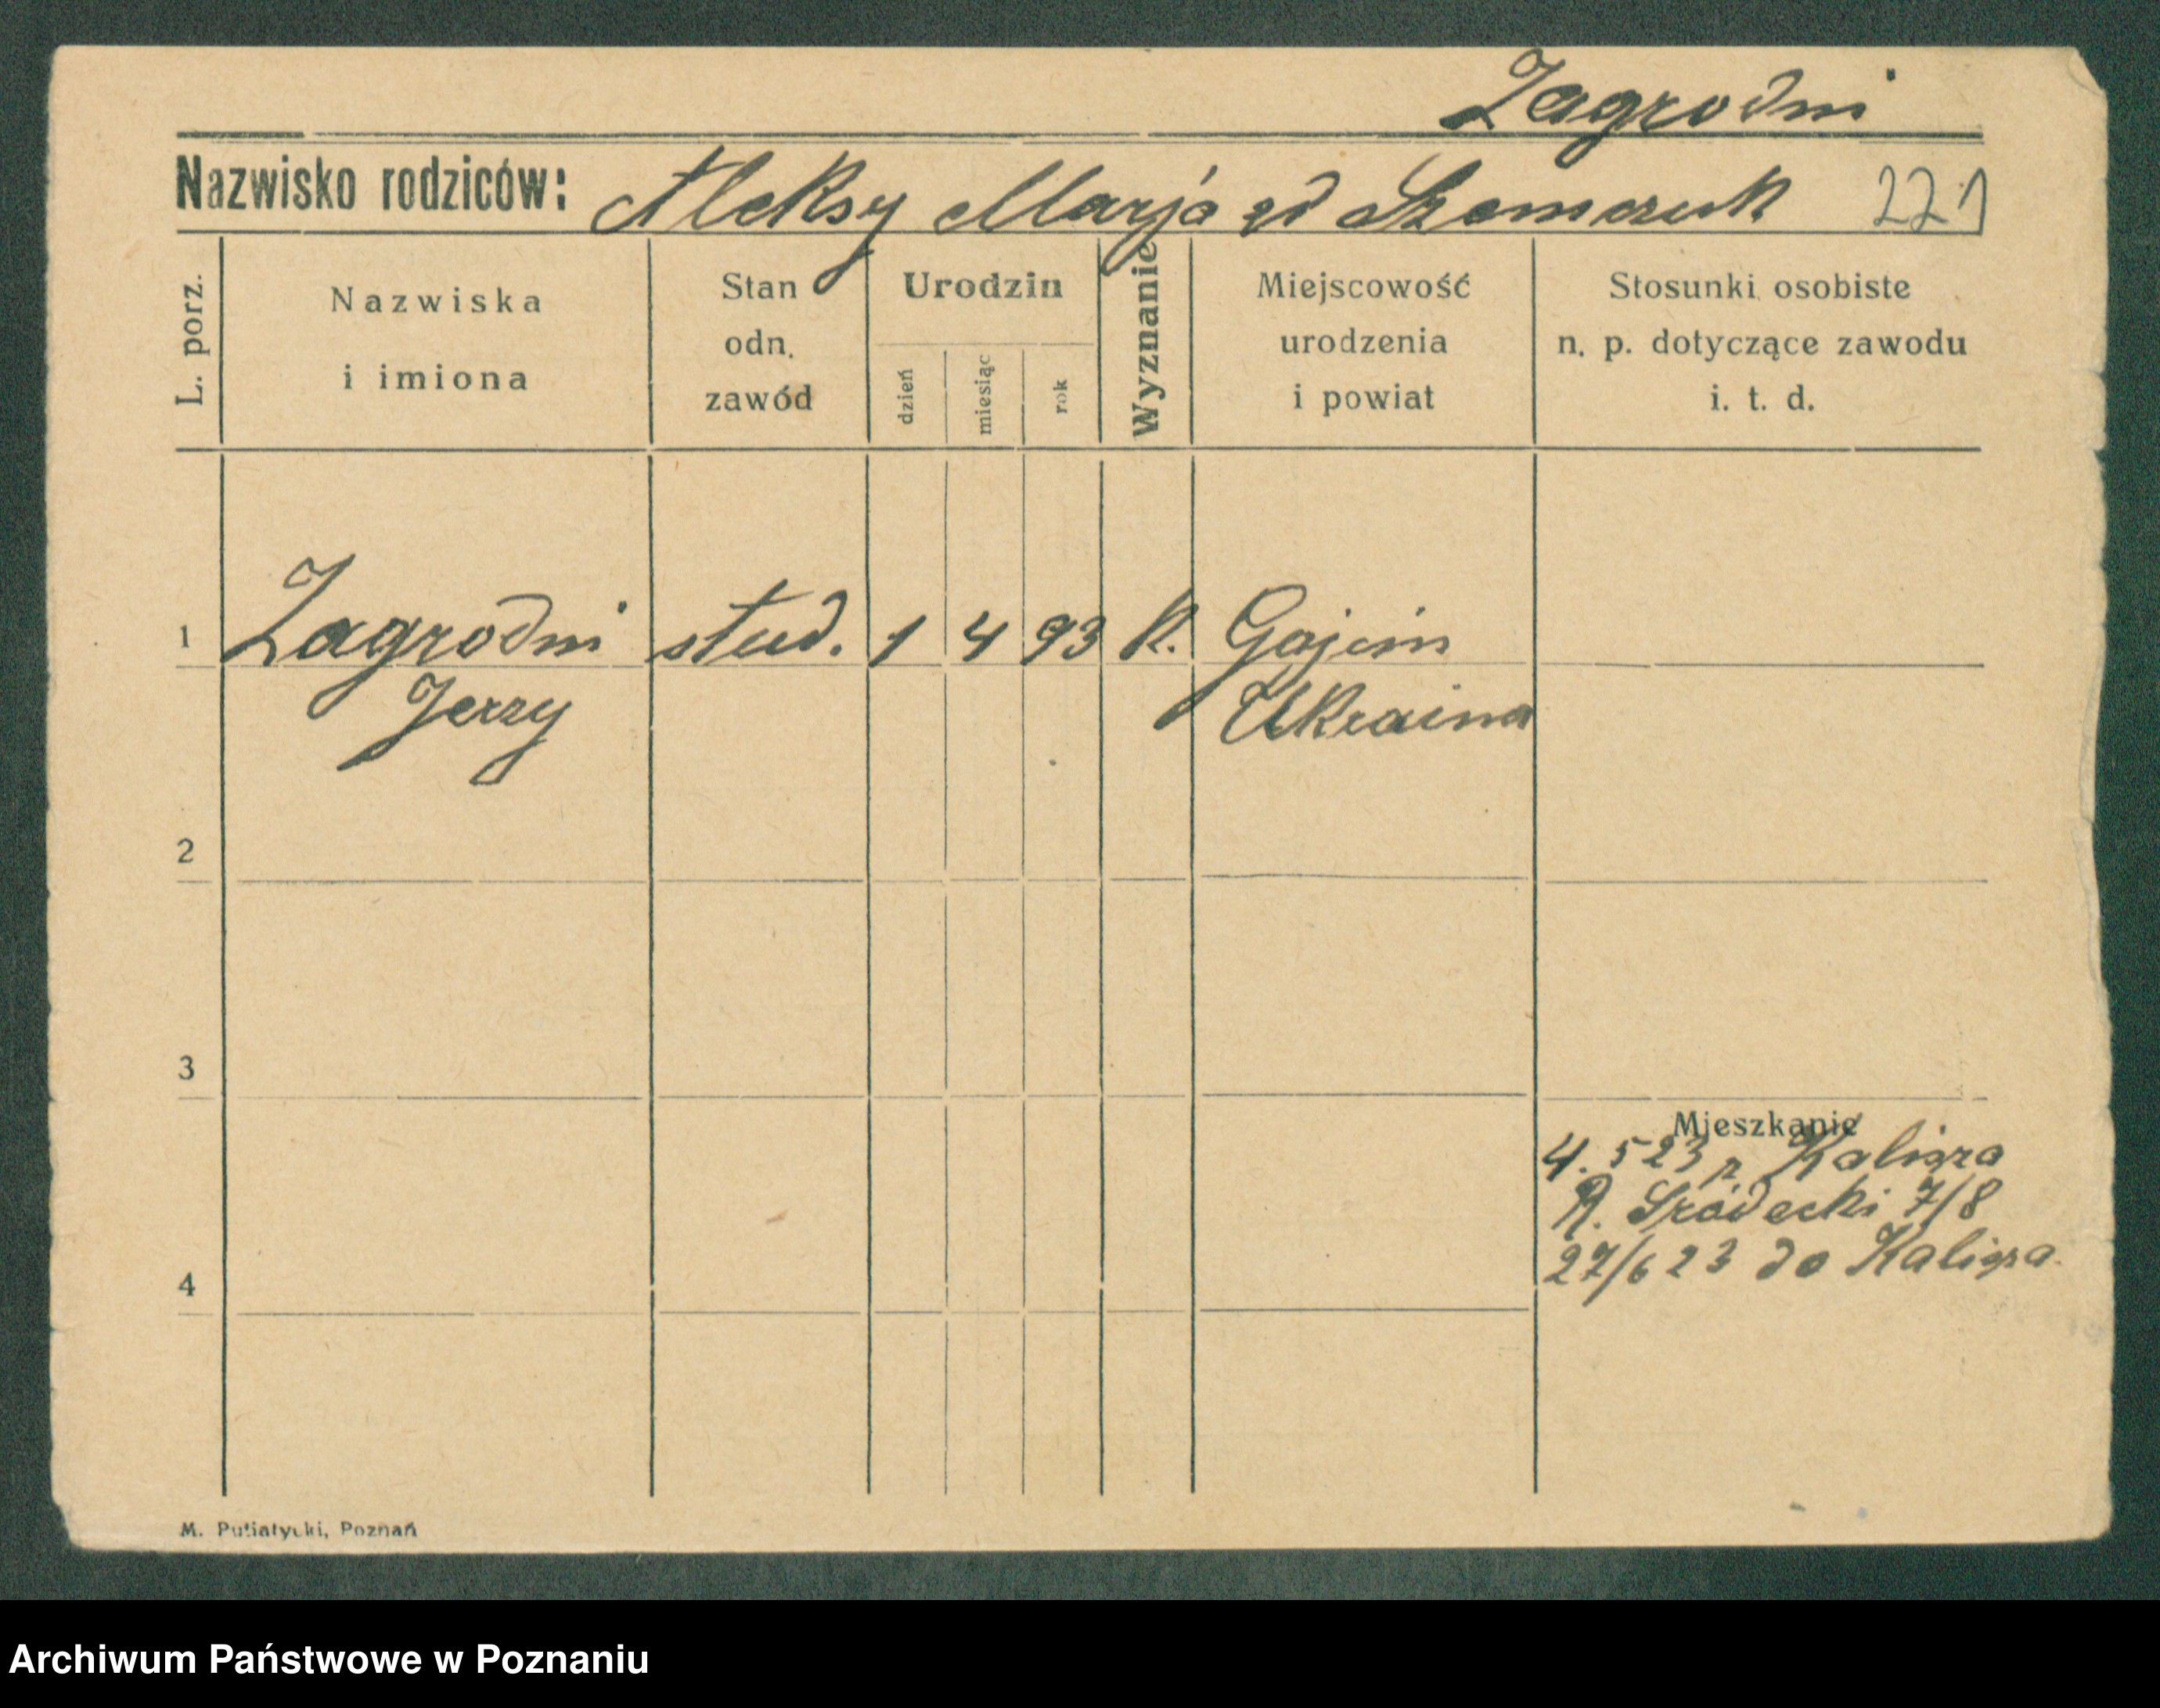 Zagrodni
Nazwisko rodziców: Aleksy Marja zd Szemczuk 221
L. porz.
Nazwiska
i imiona
Stan
odn.
zawód
Urodzin
dzień
miesiąc
rok
Wyznanie
Miejscowość
urodzenia
i powiat
Stosunki osobiste
n. p. dotyczące zawodu
i. t. d.
1 Zagrodni stud. 1 4 93 R. Gajcin
Jerzy Ukraina
2
3
Mieszkanie
4. 5 23 z Kalisza
R. Sródecki 7/8
27/6 23 do Kalisza
4
M. Putiatycki, Poznań
Archiwum Państwowe w Poznaniu